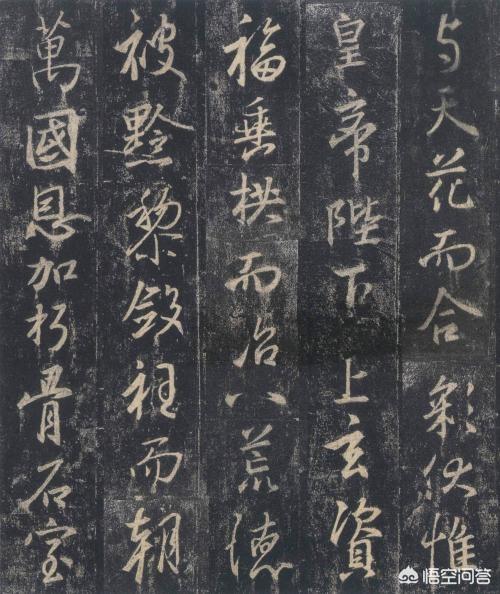 与天花而合彩伏惟
皇帝陛下上玄資
福垂拱而治八荒德
被黔黎斂衽而朝
萬國恩加朽骨石室
悟空问答